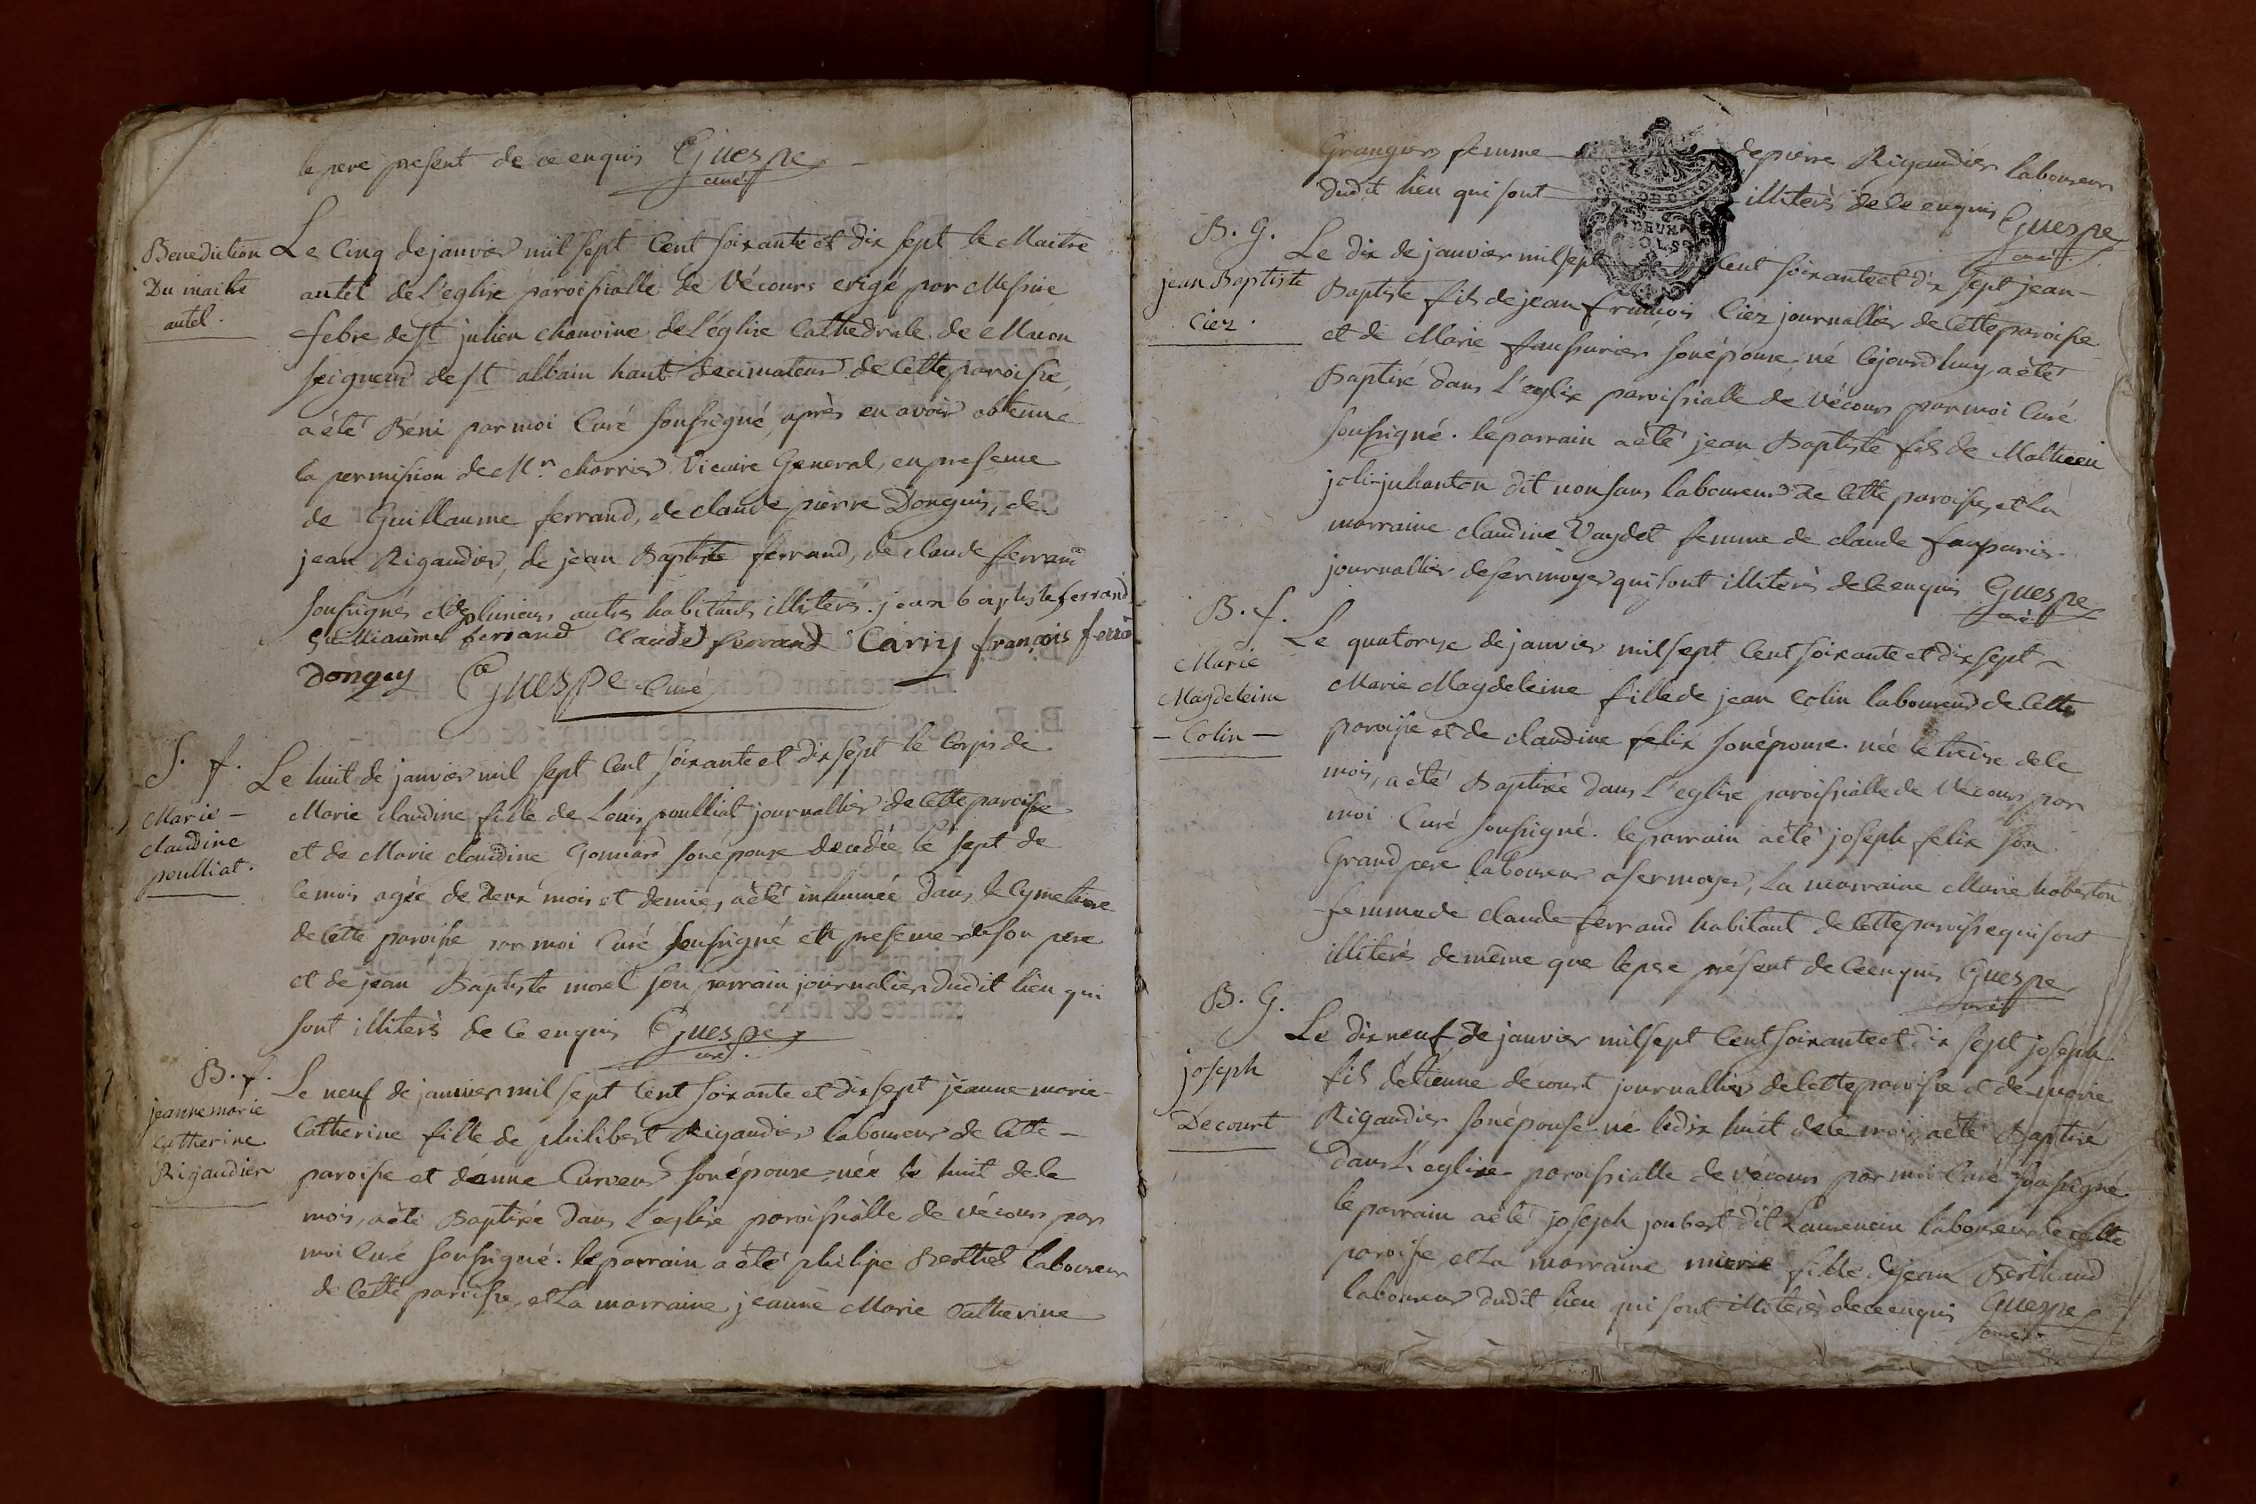 le pere present de ce enquis Guespe
curé
Benediction
Du maitre
autel.
Le Cinq de janvier mil sept Cent soixante et dix sept le Maitre
autel de L'eglise paroissialle de Vécours erigé par Messire
febre de st julien chanoine de L'église Cathedrale de Macon
seigneur de st albain haut decimateur de Cette paroisse,
a été Béni par moi Curé soussigné, après en avoir obtenue
la permission de Mr. charrier Vicaire General, en presence
de Guillaume ferrand, de claude pierre Donguis, de
jean Rigaudier, de jean Baptiste ferrand, de claude ferrand
soussignés et de plusieurs autres habitants illiterés. jean baptiste ferrand
Guilliaume ferrand Claude ferrand Carry françois ferrand
Donguy Guespe Curé
S. f.
Marie -
claudine
poulliat.
Le huit de janvier mil sept Cent soixante et dix sept le Corps de
Marie claudine fille de Louis poulliat journallier de Cette paroisse
et de Marie claudine Gonnard son épouse decedée le sept de
ce mois agée de deux mois et demie, a été inhumée dans le Cymetiere
de Cette paroisse par moi Curé soussigné en presence de son pere
et de jean Baptiste morel son parrain journalier dudit lieu qui
sont illiterés de Ce enquis Guespe
curé.
B. f.
jeanne marie
Catherine
Rigaudier
Le neuf de janvier mil sept Cent soixante et dix sept jeanne marie -
Catherine fille de philibert Rigaudier laboureur de Cette -
paroisse et d'anne Curveur son épouse, née le huit de ce
mois, a été Baptisée dans L'eglise paroissialle de Vécours par
moi Curé soussigné. le parrain a été philipe Berthet laboureur
de Cette paroisse, et La marraine jeanne Marie Catherine
Grangers femme de pierre Rigaudier laboureur
dudit lieu qui sont illiterés de Ce enquis Guespe
curé
DEUX
SOLS
B. G.
jean Baptiste
Ciez.
Le dix de janvier mil sept Cent soixante et dix sept jean -
Baptiste fils de jean françois Ciez journallier de Cette paroisse
et de Marie faussurier son épouse né Cejourd'huy, a été
Baptisé dans L'eglise paroissialle de Vécours par moi Curé
soussigné. le parrain a été jean Baptiste fils de Mathieu
joli-juhanton dit nonsans laboureur de Cette paroisse, et La
marraine claudine Vaydet femme de claude fauparis
journallier de sermoyer qui sont illiterés de Ce enquis Guespe
curé
B. f.
Marie
Magdeleine
- Colin -
Le quatorze de janvier mil sept Cent soixante et dix sept -
Marie Magdeleine fille de jean Colin laboureur de Cette
paroisse et de claudine felix son épouse née le treize de Ce
mois, a été Baptisée dans L'eglise paroissialle de Vécours par
moi Curé soussigné. le parrain a été joseph felix son
Grand pere laboureur a sermoyer, La marraine Marie
femme de claude ferrand habitant de Cette paroisse qui sont
illiterés de même que le pere présent de Ce enquis Guespe
curé
B. G.
joseph
Decourt
Le dix neuf de janvier mil sept Cent soixante et dix sept joseph
fils d'etienne decourt journallier de Cette paroisse et de marie
Rigaudier son épouse né le dix huit de Ce mois, a été Baptisé
dans L'eglise paroissialle de vécours par moi Curé soussigné
le parrain a été joseph joubert dit Laurencin laboureur de Cette
paroisse, et La marraine marie fille de jean Berthaud
laboureur dudit lieu qui sont illiterés de ce enquis Guespe
curé.